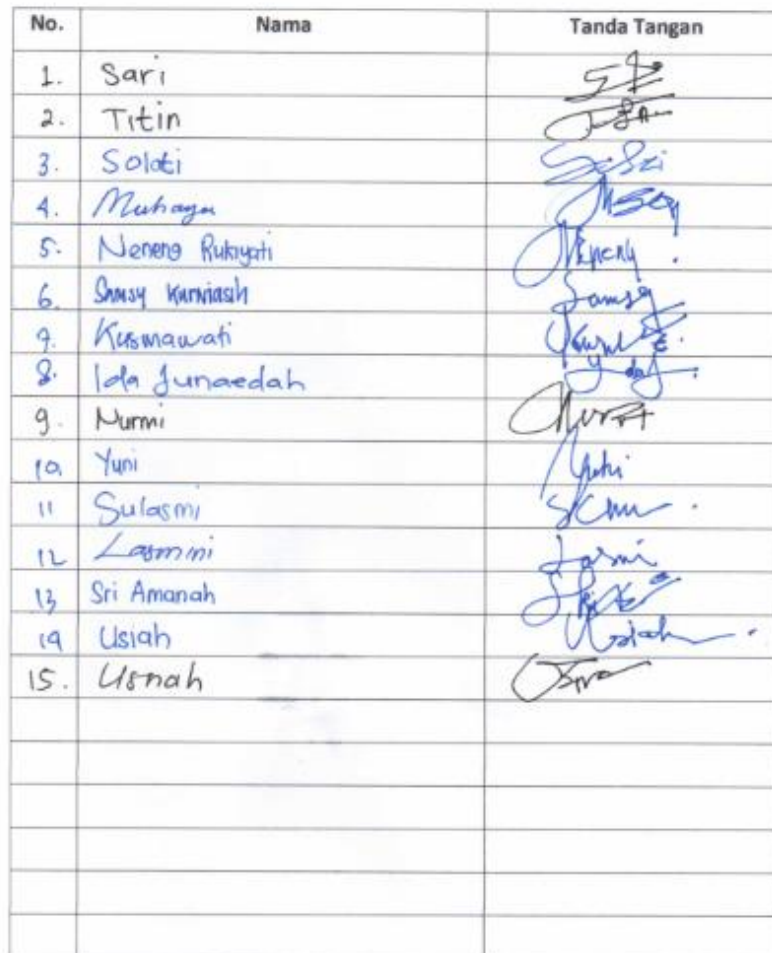 No. Nama Tanda Tangan
1. Sari
2. Titin
3. Solati
4. Muhaya
5. Neneng Rukiyati Neneng
6. Samsy Kurniasih Samsy
7. Kusmawati
8. Ida Junaedah Ida
9. Nurmi
10. Yuni
11 Sulasmi
12 Lasmini Lasmi
13 Sri Amanah
14 Usiah Usiah
15. Usnah